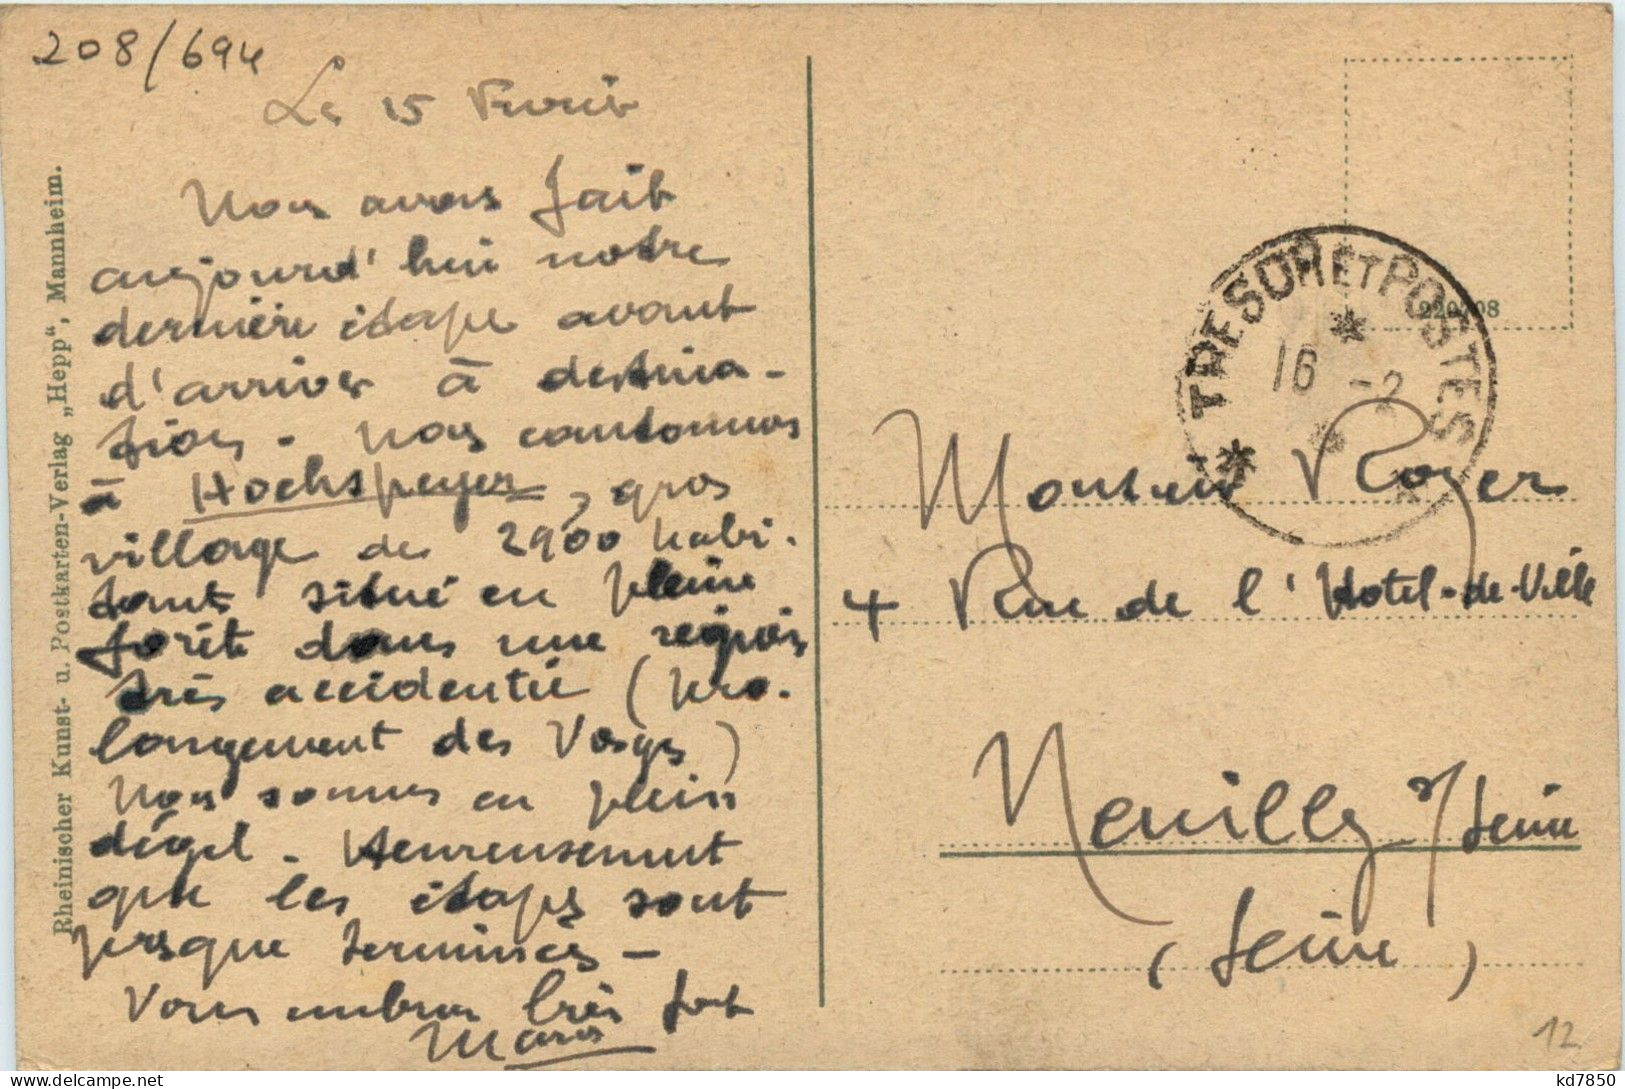 208/694
Le 15 Février
Nous avons fait
aujourd'hui notre
dernière étape avant
d'arriver à destina-
tion - Nous cantonnons
à Hochspeyer, gros
village de 2900 habi-
tants situé en pleine
forêt dans une région
très accidentée (pro-
longement des Vosges)
Nous sommes en plein
dégel - Heureusement
que les étapes sont
presque terminées -
Vous embrasse très fort
Rheinischer Kunst- u. Postkarten-Verlag „Hepp", Mannheim.
TRESOR ET POSTES
16 -2
Monsieur Royer
4 Rue de l'Hotel-de-Ville
Neuilly s/Seine
(Seine)
12
kd7850